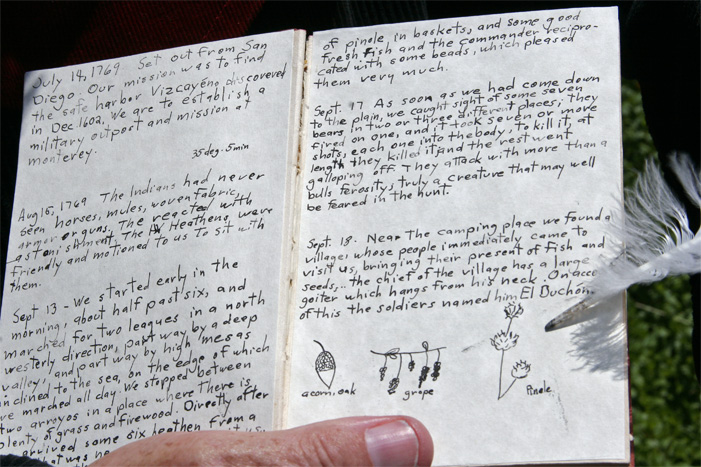 July 14, 1769 Set out from San
Diego. Our mission was to find
the safe harbor Vizcayéno discovered
in Dec. 1602. We are to establish a
military outpost and mission at
monterey.
35 deg. 5 min
Aug 15, 1769 The Indians had never
seen horses, mules, woven fabric,
armor or guns. The reacted with
astonishment. The Heathens were
friendly and motioned to us To sit with
them.
Sept 13 - We started early in the
morning, about half past six, and
marched for two leagues in a north
westerly direction, part way by a deep
valley, and part way by high mesas
inclined to the sea, on the edge of which
we marched all day. We stopped between
two arroyos in a place where There is
plenty of grass and firewood. Directly after
arrived some six heathen from a
that was
of pinole, in baskets, and some good
fresh fish and the commander recipro-
cated with some beads, which pleased
them very much.
Sept. 17 As soon as we had come down
to the plain, we caught sight of some seven
bears, in two or three different places; they
fired on one, and it took seven or more
shots, each one into the body, to kill it, at
length they killed it and the rest went
galloping off. They attack with more than a
bulls ferosity, truly a creature that may well
be feared in the hunt.
Sept. 18. Near The camping place we found a
village whose people immediately came to
visit us, bringing their present of fish and
seeds,.. the chief of the village has a large
goiter which hangs from his neck. On acco
of this the soldiers named him El Buchón
acorn, oak
grape
Pinole